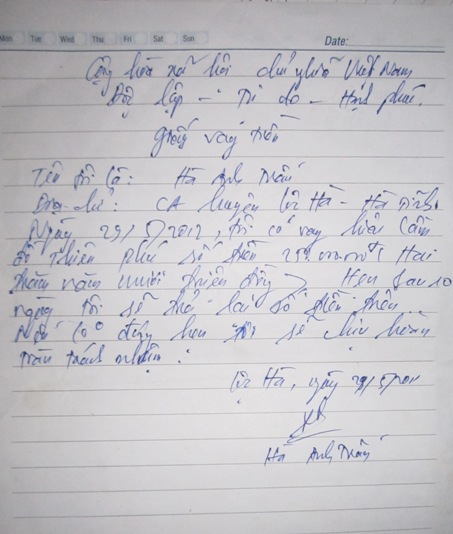 Mon Tue Wed Thu Fri Sat Sun Date:
Cộng hòa xã hội chủ nghĩa Việt Nam
Độc lập - Tự do - Hạnh phúc.
Giấy vay tiền
Tên tôi là: Hà Anh Tuấn
Địa chỉ: CA huyện Lộc Hà - Hà Tĩnh.
Ngày 29/5/2012, tôi có vay hiệu Cầm
đồ Thiên Phú số tiền Hai
trăm năm mươi triệu đồng Hẹn sau 10
ngày tôi sẽ trả lại số tiền trên.
Nếu đúng hẹn tôi sẽ chịu hoàn
toàn trách nhiệm.
Lộc Hà, ngày
Hà Anh Tuấn